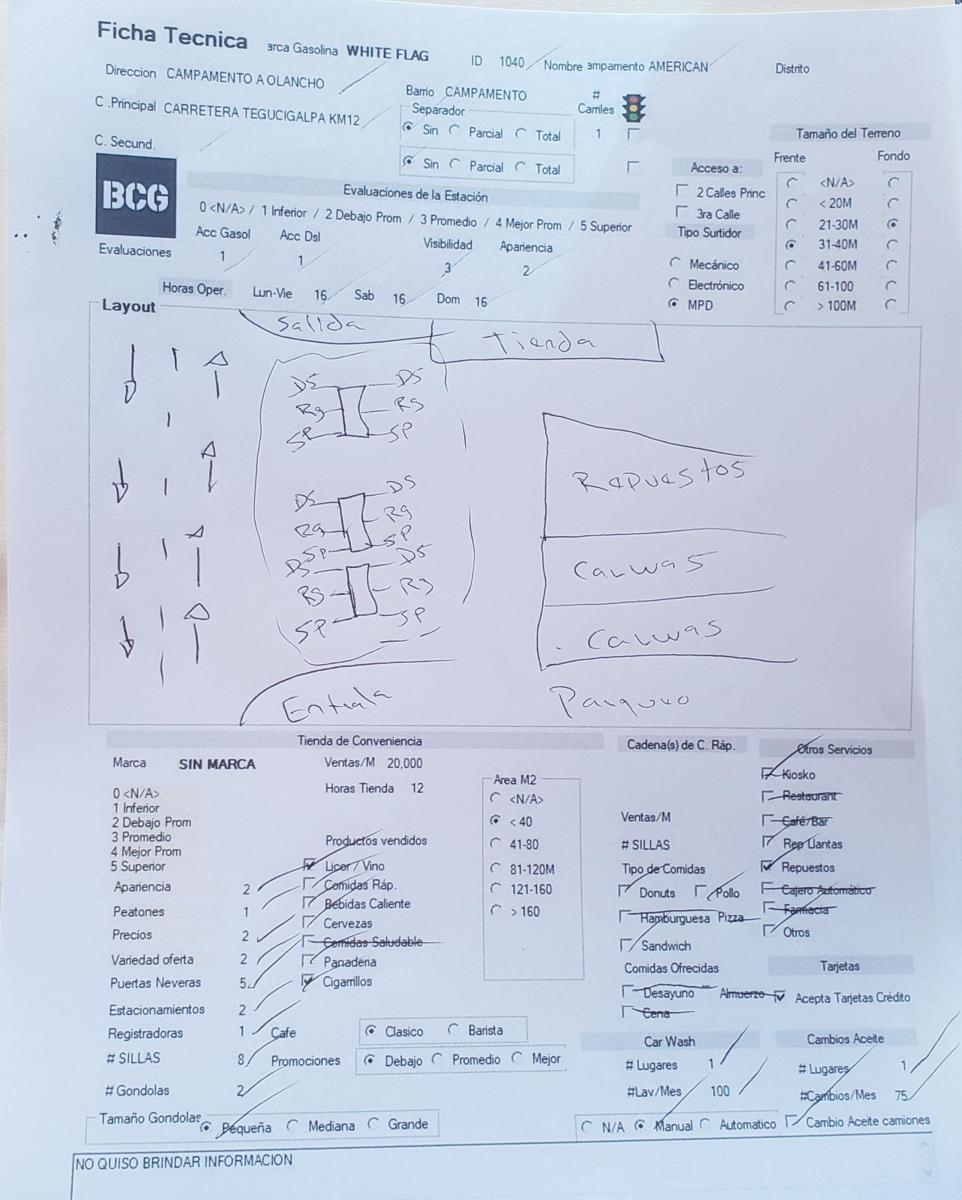 Ficha Tecnica arca Gasolina WHITE FLAG ID 1040 Nombre ampamento AMERICAN Distrito
Direccion CAMPAMENTO A OLANCHO Barrio CAMPAMENTO # Carriles
C .Principal CARRETERA TEGUCIGALPA KM12 Separador
Sin Parcial Total 1
C. Secund. Sin Parcial Total
Tamaño del Terreno
Frente Fondo
<N/A>
< 20M
21-30M
31-40M
41-60M
61-100
> 100M
Acceso a:
2 Calles Princ
3ra Calle
Tipo Surtidor
Mecánico
Electrónico
MPD
BCG
Evaluaciones de la Estación
0 <N/A> / 1 Inferior / 2 Debajo Prom / 3 Promedio / 4 Mejor Prom / 5 Superior
Acc Gasol Acc Dsl Visibilidad Apariencia
Evaluaciones 1 1 3 2
Horas Oper. Lun-Vie 16 Sab 16 Dom 16
Layout
Salida Tienda
DS DS
Rg Rg
SP SP
DS DS
Rg Rg
SP SP
DS DS
Rg Rg
SP SP
Repuestos
Carwas
Carwas
Entrada Parqueo
Tienda de Conveniencia
Marca SIN MARCA Ventas/M 20,000
Horas Tienda 12
0 <N/A>
1 Inferior
2 Debajo Prom
3 Promedio
4 Mejor Prom
5 Superior
Apariencia 2
Peatones 1
Precios 2
Variedad oferta 2
Puertas Neveras 5
Estacionamientos 2
Registradoras 1
# SILLAS 8
# Gondolas 2
Tamaño Gondolas Pequeña Mediana Grande
Productos vendidos
Licor / Vino
Comidas Ráp.
Bebidas Caliente
Cervezas
Comidas Saludable
Panaderia
Cigarrillos
Cafe Clasico Barista
Promociones Debajo Promedio Mejor
Area M2
<N/A>
< 40
41-80
81-120M
121-160
> 160
Cadena(s) de C. Ráp.
Ventas/M
# SILLAS
Tipo de Comidas
Donuts Pollo
Hamburguesa Pizza
Sandwich
Comidas Ofrecidas
Desayuno Almuerzo
Cena
Otros Servicios
Kiosko
Restaurant
Café/Bar
Rep Llantas
Repuestos
Cajero Automático
Farmacia
Otros
Tarjetas
Acepta Tarjetas Crédito
Car Wash
# Lugares 1
#Lav/Mes 100
N/A Manual Automatico
Cambios Aceite
# Lugares 1
#Cambios/Mes 75
Cambio Aceite camiones
NO QUISO BRINDAR INFORMACION